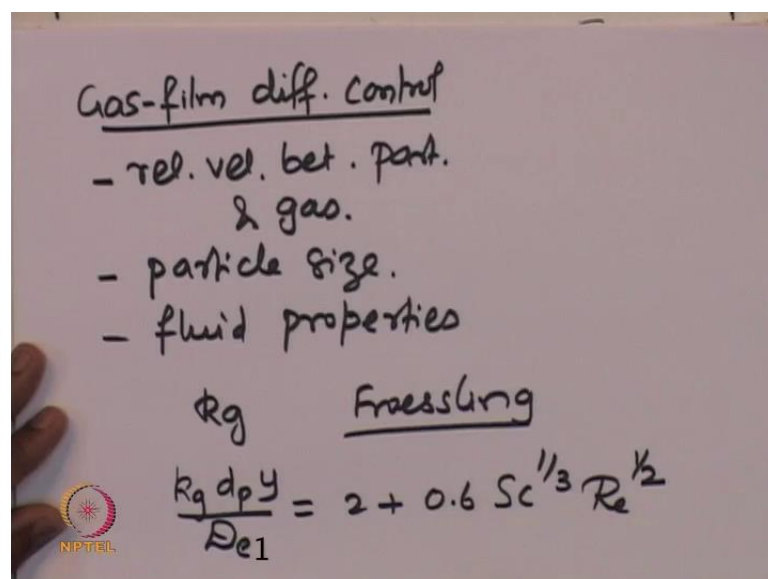 Gas-film diff. control
- rel. vel. bet. part.
& gas.
- particle size.
- fluid properties
kg Froessling
kg dp y / De1 = 2 + 0.6 Sc^1/3 Re^1/2
NPTEL